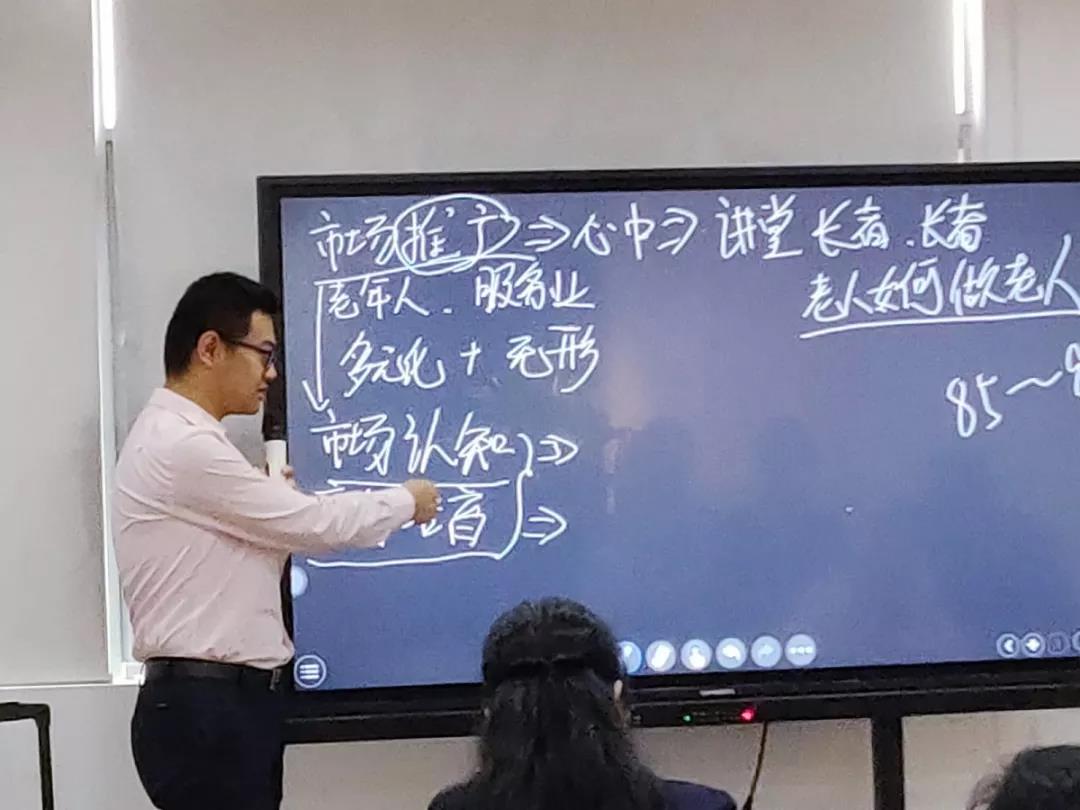 市场推广⇒心中⇒讲堂 长者、长者
老年人、服务业
老人如何做老人
多元化 + 无形
85~
市场认知 ⇒
育 ⇒